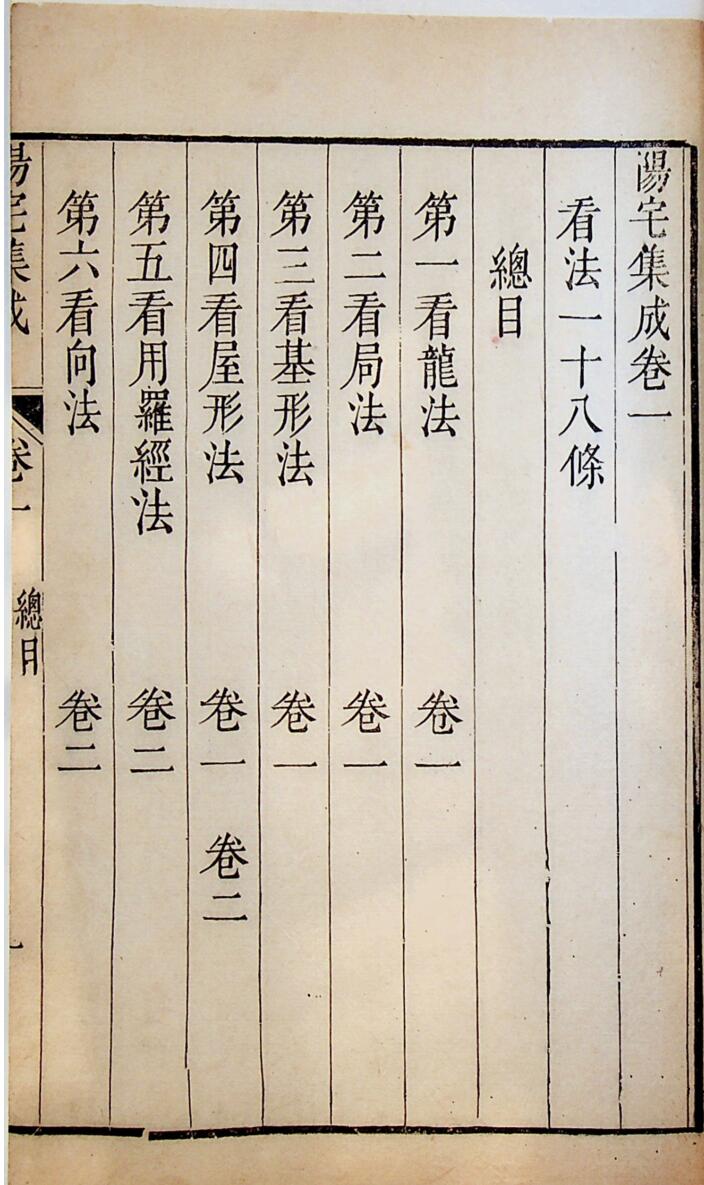 陽宅集成卷一
看法一十八條
總目
第一看龍法 卷一
第二看局法 卷一
第三看基形法 卷一
第四看屋形法 卷一 卷二
第五看用羅經法 卷二
第六看向法 卷二
陽宅集成 卷一 總目